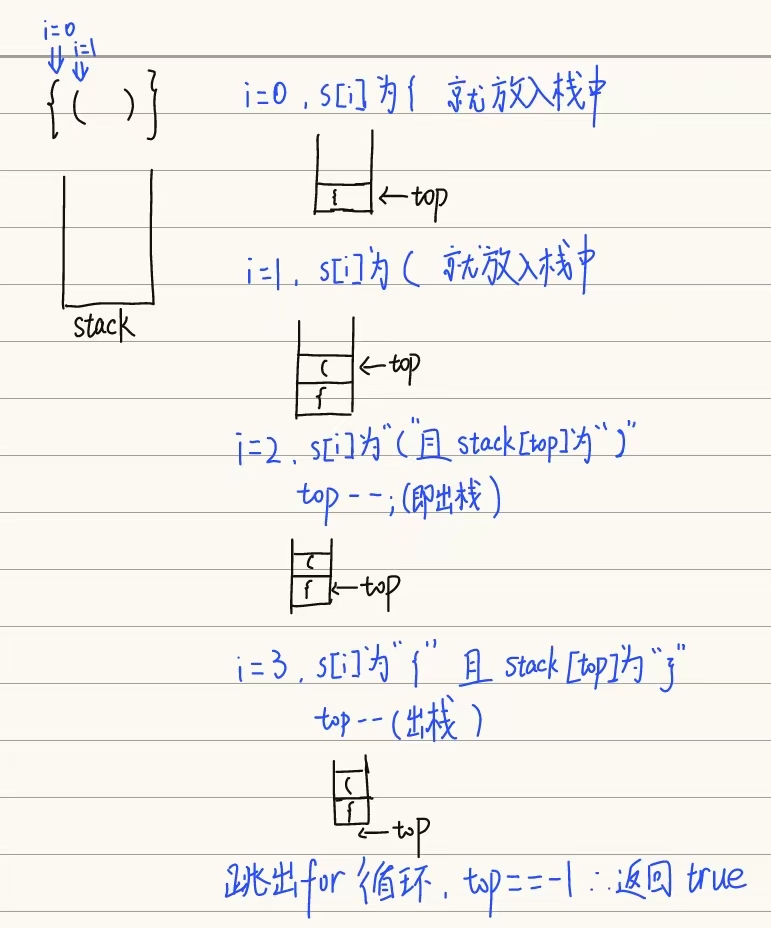 i=0
i=1
{( )}
stack
i=0, s[i]为{ 就放入栈中
{ ←top
i=1, s[i]为( 就放入栈中
( ←top
{
i=2, s[i]为"("且stack[top]为")"
top--;(即出栈)
(
{ ←top
i=3, s[i]为"{" 且 stack[top]为"}"
top--(出栈)
(
{
←top
跳出for循环, top==-1 ∴返回true